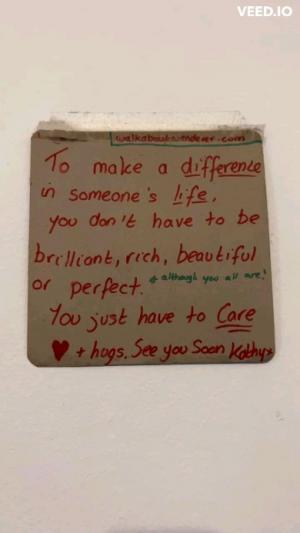 VEED.IO
walkaboutwanderer.com
To make a difference
in someone's life,
you don't have to be
brilliant, rich, beautiful
or perfect. + although you all are!
You just have to Care
♥ + hugs. See you Soon Kathy x